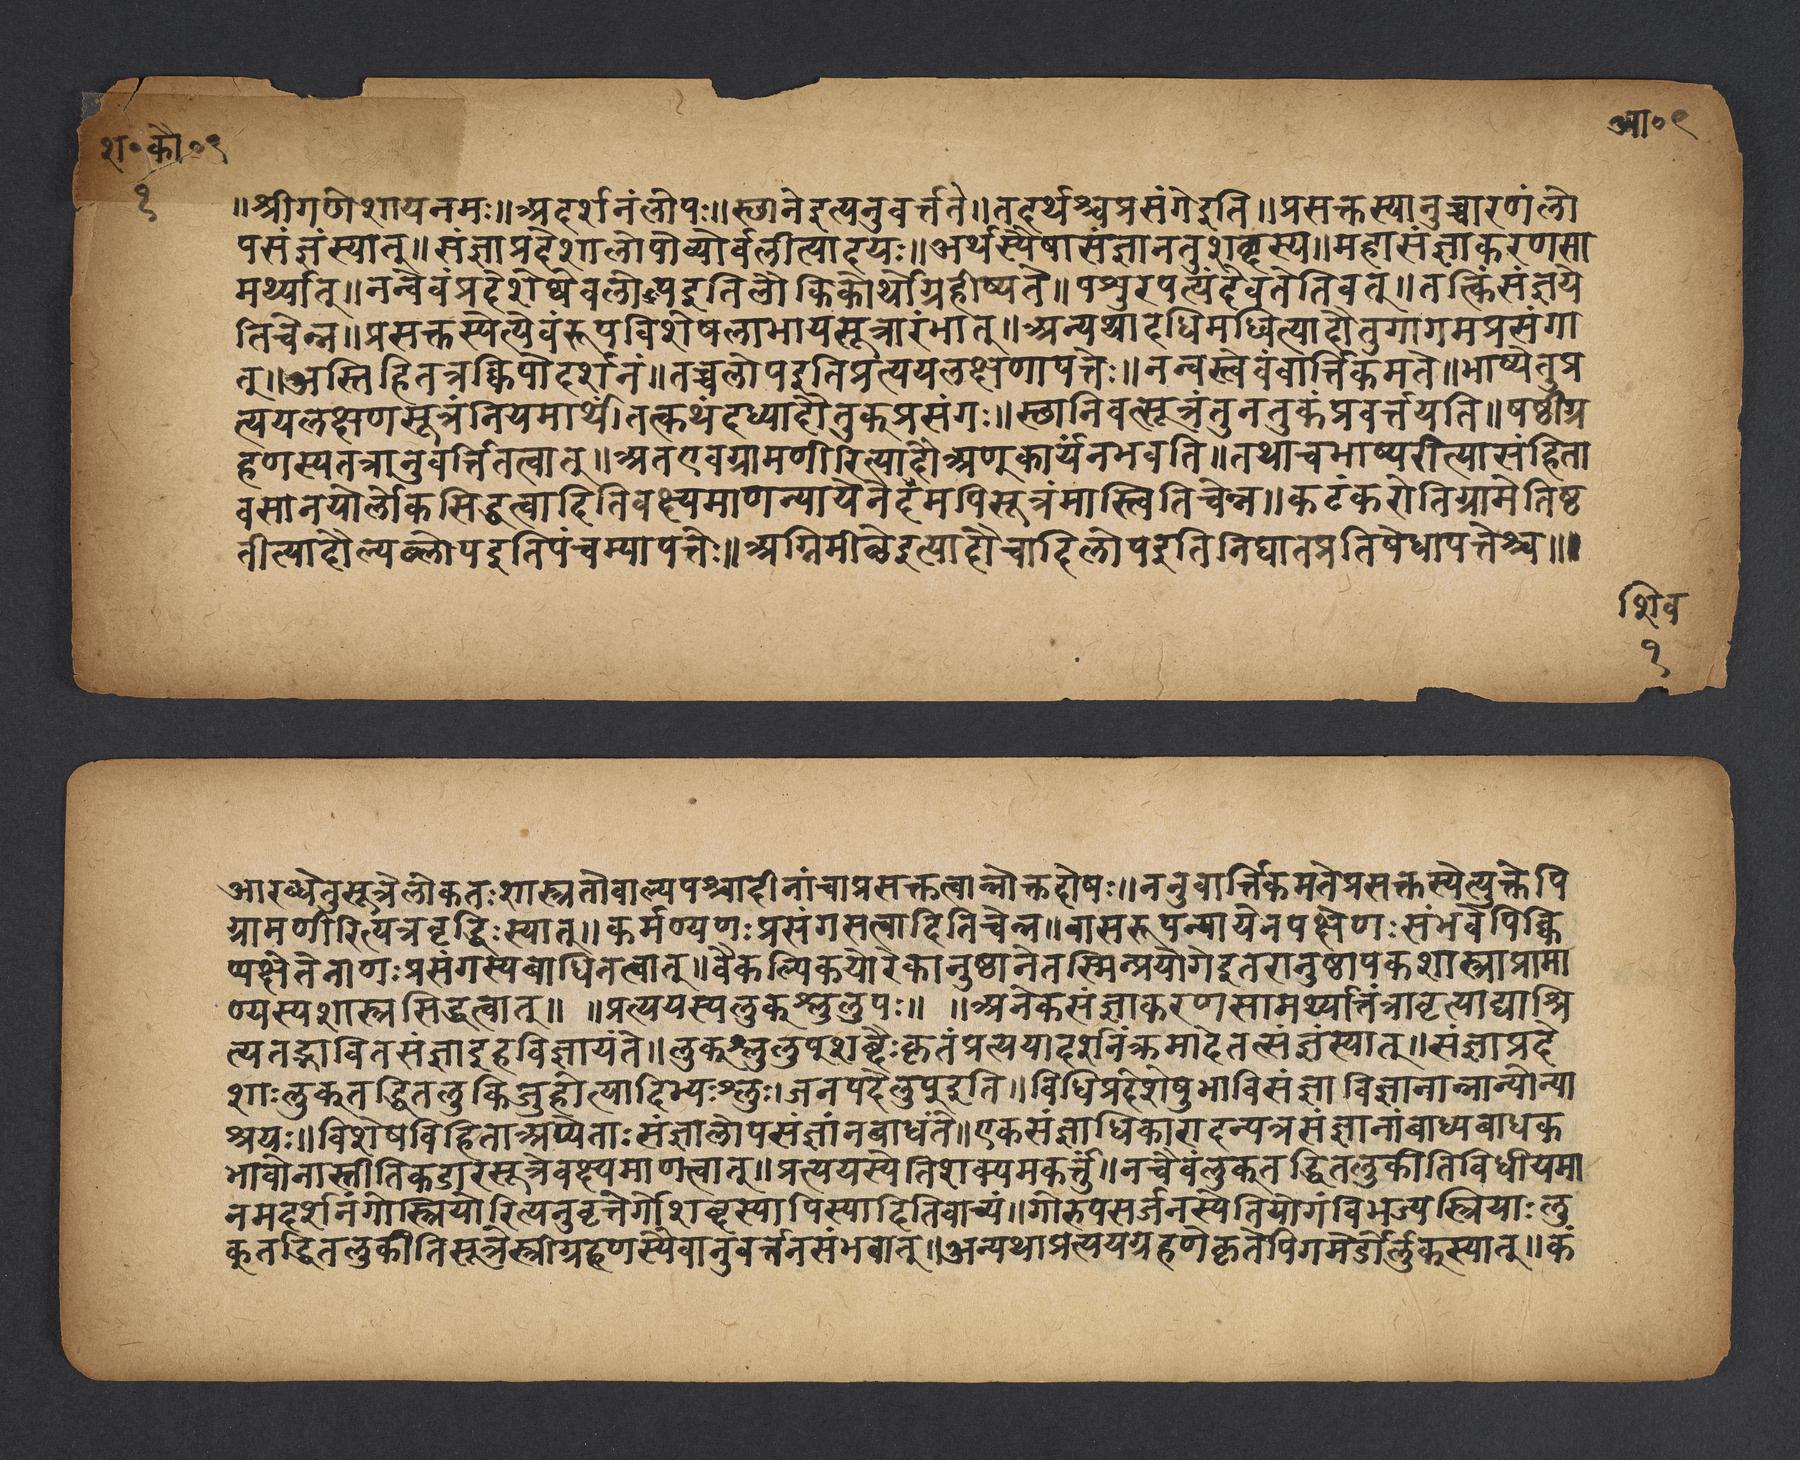 श॰कौ॰९
१
आ॰९
॥श्रीगणेशायनमः॥अदर्शनंलोपः॥स्थानेइत्यनुवर्त्तते॥तदर्थश्चप्रसंगेइति॥प्रसक्तस्यानुच्चारणंलो
पसंज्ञंस्यात्॥संज्ञाप्रदेशालोपोव्योर्वलीत्यादयः॥अर्थस्यैषासंज्ञानतुशब्दस्य॥महासंज्ञाकरणसा
मर्थ्यात्॥नन्वेवंप्रदेशेष्वेवलोपइतिलौकिकोर्थोग्रहीष्यते॥पश्युरपत्यंदेवतेतिवत्॥तत्किंसंज्ञये
तिचेन्न॥प्रसक्तस्येत्येवंरूपविशेषलाभायसूत्रारंभात्॥अन्यथादधिमध्वित्यादौतुगागमप्रसंगा
त्॥अस्तिहितत्रक्विपोदर्शनं॥तच्चलोपइतिप्रत्ययलक्षणापत्तेः॥नन्वस्त्वेवंवार्त्तिकमते॥भाष्येतुप्र
त्ययलक्षणसूत्रंनियमार्थं।तत्कथंदध्यादौतुक्प्रसंगः॥स्थानिवत्सूत्रंतुनतुकंप्रवर्त्तयति॥षष्ठीग्र
हणस्यतत्रानुवर्त्तितत्वात्॥अतएवग्रामणीरित्यादौअण्कार्यंनभवति॥तथाचभाष्यरीत्यासंहिता
वसानयोर्लोकसिद्धत्वादितिवक्ष्यमाणन्यायेनेदमपिसूत्रंमास्त्वितिचेन्न॥कटंकरोतिग्रामेतिष्ठ
तीत्यादौल्यब्लोपइतिपंचम्यापत्तेः॥अग्निमीळेइत्यादौचादिलोपइतिनिघातप्रतिषेधापत्तेश्च॥
शिव
१
आरब्धेतुसूत्रेलोकतःशास्त्रतोवाल्यपश्चादीनांचाप्रसक्तत्वान्नोक्तदोषः॥ननुवार्त्तिकमतेप्रसक्तस्येत्युक्तेपि
ग्रामणीरित्यत्रवृद्धिःस्यात्॥कर्मण्यणःप्रसंगसत्वादितिचेन्न॥वासरूपन्यायेनपक्षेणःसंभवेपिक्वि
प्पक्षेतेनाणःप्रसंगस्यबाधितत्वात्॥वैकल्पिकयोरेकानुष्ठानेतस्मिन्प्रयोगेइतरानुष्ठापकशास्त्राप्रामा
ण्यस्यशास्त्रसिद्धत्वात्॥ ॥प्रत्ययस्यलुक्श्लुलुपः॥ ॥अनेकसंज्ञाकरणसामर्थ्यात्तंत्रावृत्याद्याश्रि
त्यतद्भावितसंज्ञाइहविज्ञायंते॥लुक्श्लुलुप्शब्दैःकृतंप्रत्ययादर्शनंक्रमादेतत्संज्ञंस्यात्॥संज्ञाप्रदे
शाःलुक्तद्धितलुकिजुहोत्यादिभ्यःश्लुः।जनपदेलुप्इति॥विधिप्रदेशेषुभाविसंज्ञाविज्ञानान्नान्योन्या
श्रयः॥विशेषविहिताअप्येताःसंज्ञालोपसंज्ञांनबाधंते॥एकसंज्ञाधिकारादन्यत्रसंज्ञानांबाध्यबाधक
भावोनास्तीतिकडारसूत्रेवक्ष्यमाणत्वात्॥प्रत्ययस्येतिशक्यमकर्त्तुं॥नचैवंलुक्तद्धितलुकीतिविधीयमा
नमदर्शनंगोस्त्रियोरित्यनुवृत्तेर्गोशब्दस्यापिस्यादितिवाच्यं॥गोरुपसर्जनस्येतियोगंविभज्यस्त्रियाःलु
क्तद्धितलुकीतिसूत्रेस्त्रीग्रहणस्यैवानुवर्त्तनसंभवात्॥अन्यथाप्रत्ययग्रहणेकृतेपिगमेर्डोर्लुक्स्यात्॥कं